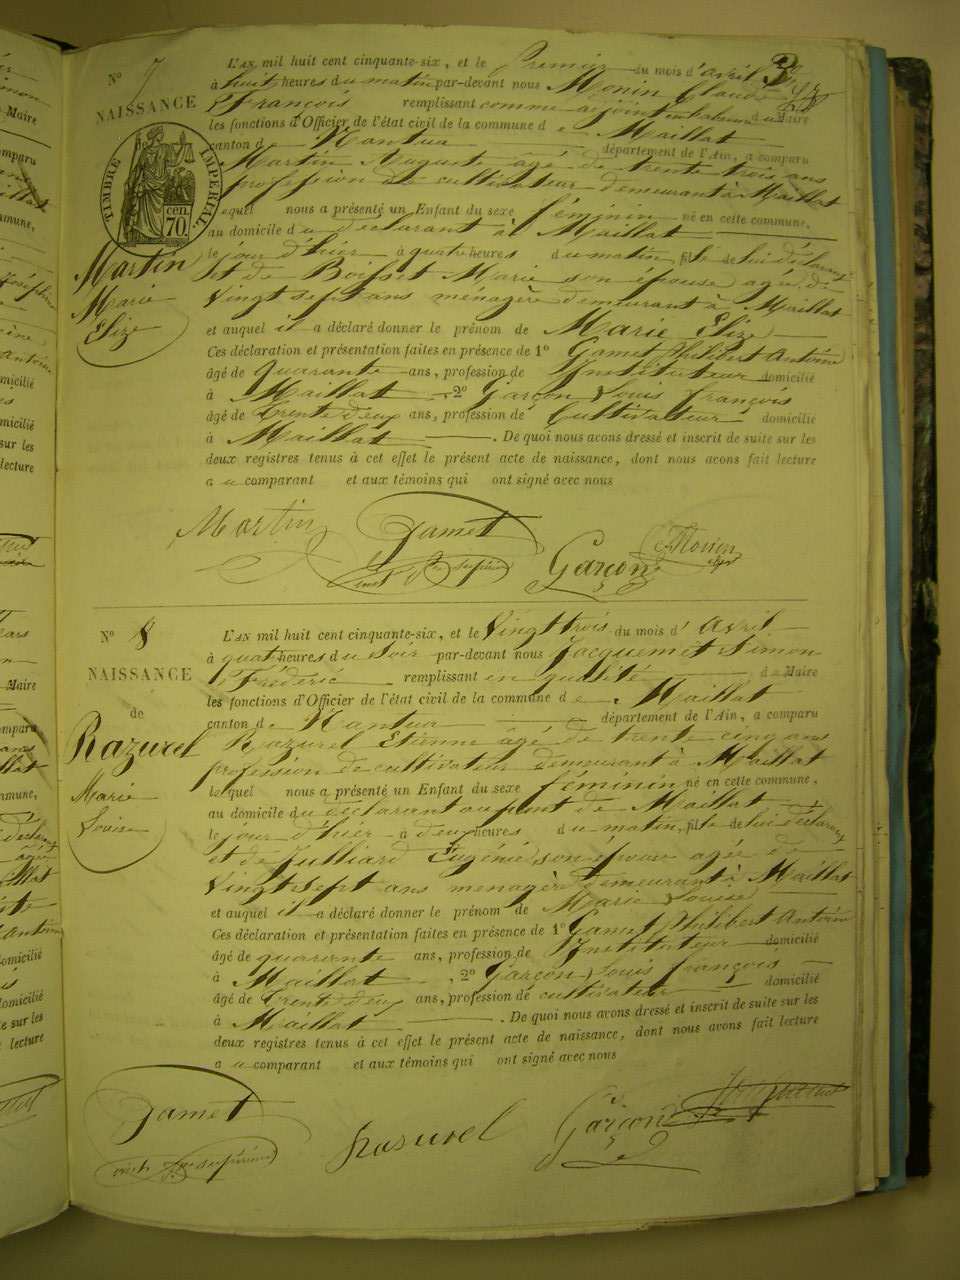 3
N° 7
NAISSANCE
TIMBRE IMPÉRIAL
70 cen.
Martin
Marie
Elize
L'AN mil huit cent cinquante-six, et le Premier du mois d'avril
à huit heures du matin par-devant nous Monin Claude
François remplissant comme adjoint du Maire
les fonctions d'Officier de l'état civil de la commune de Maillat
canton de Nantua département de l'Ain, a comparu
Martin Auguste âgé de trente trois ans
profession de cultivateur demeurant à Maillat
lequel nous a présenté un Enfant du sexe féminin né en cette commune,
au domicile du déclarant à Maillat
le jour d'hier à quatre heures du matin, fille de lui déclarant
et de Boisset Marie son épouse agée de
vingt sept ans ménagère demeurant à Maillat
et auquel il a déclaré donner le prénom de Marie Elize
Ces déclaration et présentation faites en présence de 1° Gamet Philibert Antoine
âgé de quarante ans, profession de Instituteur domicilié
à Maillat 2° Garçon Louis françois
âgé de trente deux ans, profession de Cultivateur domicilié
à Maillat . De quoi nous avons dressé et inscrit de suite sur les
deux registres tenus à cet effet le présent acte de naissance, dont nous avons fait lecture
a u comparant et aux témoins qui ont signé avec nous
Martin Gamet Garçon Monin
N° 8
NAISSANCE
de
Razurel
Marie
Louise
L'AN mil huit cent cinquante-six, et le vingt trois du mois d' avril
à quatre heures du soir par-devant nous Jacquemet Simon
Frédéric remplissant en qualité de Maire
les fonctions d'Officier de l'état civil de la commune de Maillat
canton de Nantua département de l'Ain, a comparu
Razurel Etienne âgé de trente cinq ans
profession de cultivateur demeurant à Maillat
lequel nous a présenté un Enfant du sexe féminin né en cette commune,
au domicile du déclarant au pont de Maillat
le jour d'hier à deux heures du matin, fille de lui déclarant
et de Julliard Eugénie son épouse agée de
vingt sept ans menagère demeurant à Maillat
et auquel il a déclaré donner le prénom de Marie Louise
Ces déclaration et présentation faites en présence de 1° Gamet Philibert Antoine
âgé de quarante ans, profession de Instituteur domicilié
à Maillat , 2° Garçon Louis françois
âgé de trente deux ans, profession de cultivateur domicilié
à Maillat . De quoi nous avons dressé et inscrit de suite sur les
deux registres tenus à cet effet le présent acte de naissance, dont nous avons fait lecture
a u comparant et aux témoins qui ont signé avec nous
Gamet Rasurel Garçon